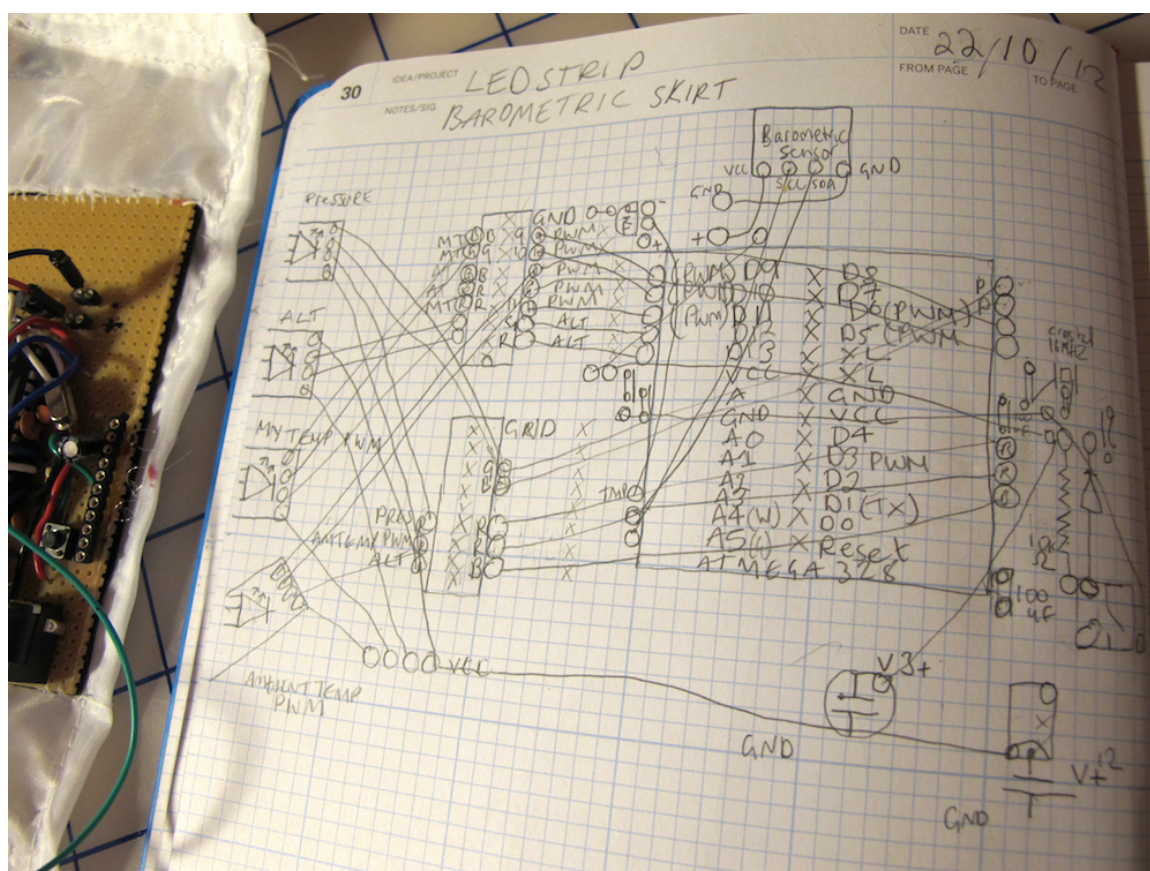 30
IDEA/PROJECT LED STRIP
NOTES/SIG BAROMETRIC SKIRT
DATE 22/10/12
FROM PAGE
TO PAGE
Barometric
Sensor
VCC SCL SDA GND
GND
+
PRESSURE
GND
MT B 9 PWM X
MT G 10 PWM X
B X PWM X
R X PWM
MT R PWM X
ALT
R ALT
ALT
MY TEMP PWM
GRID
PRES
AMTEMP PWM
ALT
R
B
VCC
AMBIENT TEMP
PWM
(PWM) D9 X D8
(PWM) D10 X D7
(PWM) D11 X D6 (PWM)
X D5 (PWM
D13 X XL
VCC X XL
A X GND
GND X VCC
A0 X D4
A1 X D3 PWM
A2 X D2
A3 X D1 (TX)
A4 X D0
A5 X Reset
ATMEGA 328
TMP
crystal
16MHz
Ω
100
uF
V3+
GND
V+12
GND